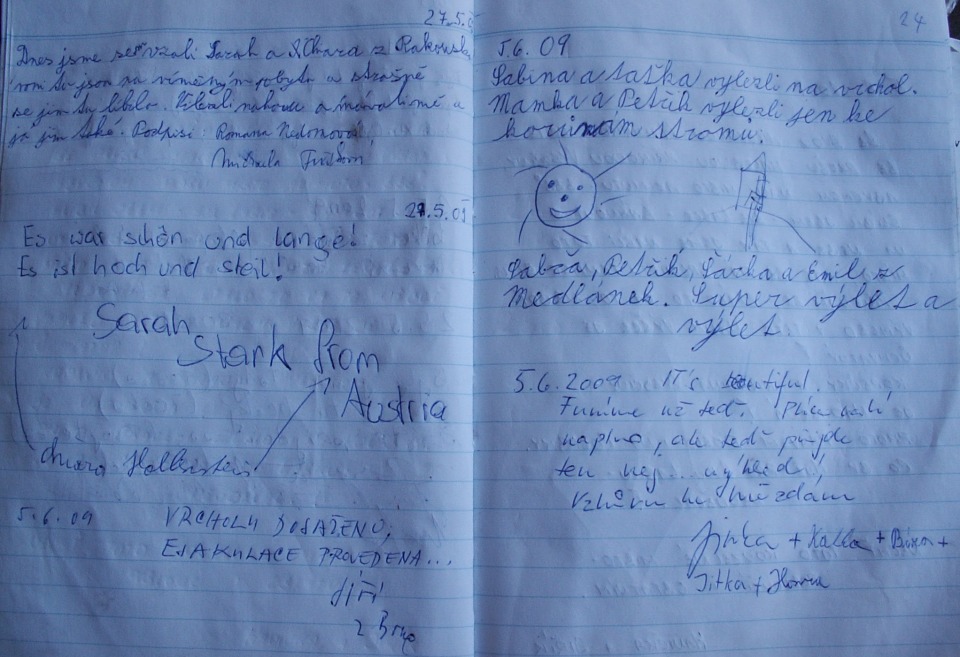 27.5.09
Dnes jsme se vzali Sarah a Chiara z Rakouska
jsou na výměnným pobytu a strašně
se jim tu líbilo. Vylezli nahoru a mávali mě a
já jim také. Podpisi: Romana
27.5.09
Es war schön und lange!
Es ist hoch und steil!
Sarah
Stark from
Austria
Chiara
5.6.09
VRCHOLU DOSAŽENO,
EJAKULACE PROVEDENA...
Jiří
z Brna
24
5.6.09
Sabina a taťka vylezli na vrchol.
Mamka a Petřík vylezli jen ke
korunám stromů.
Sabča, Petřík, Šárka a Emil z
Medlánek. Super výlet a
výlet.
5.6.2009 IT'S beautiful.
Funíme už teď. Plíce
naplno, ale teď přijde
ten nej... výhled!
Vzhůru ke hvězdám
Jirka + Katka +
Jitka + Honza